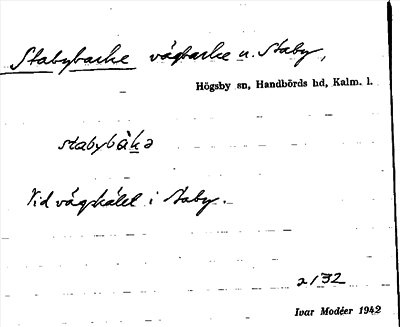 Stabybacke vägbacke n. Staby,
Högsby sn, Handbörds hd, Kalm. l.
stabybàkə
Vid vägskälet i Staby.
2/32
Ivar Modéer 1942